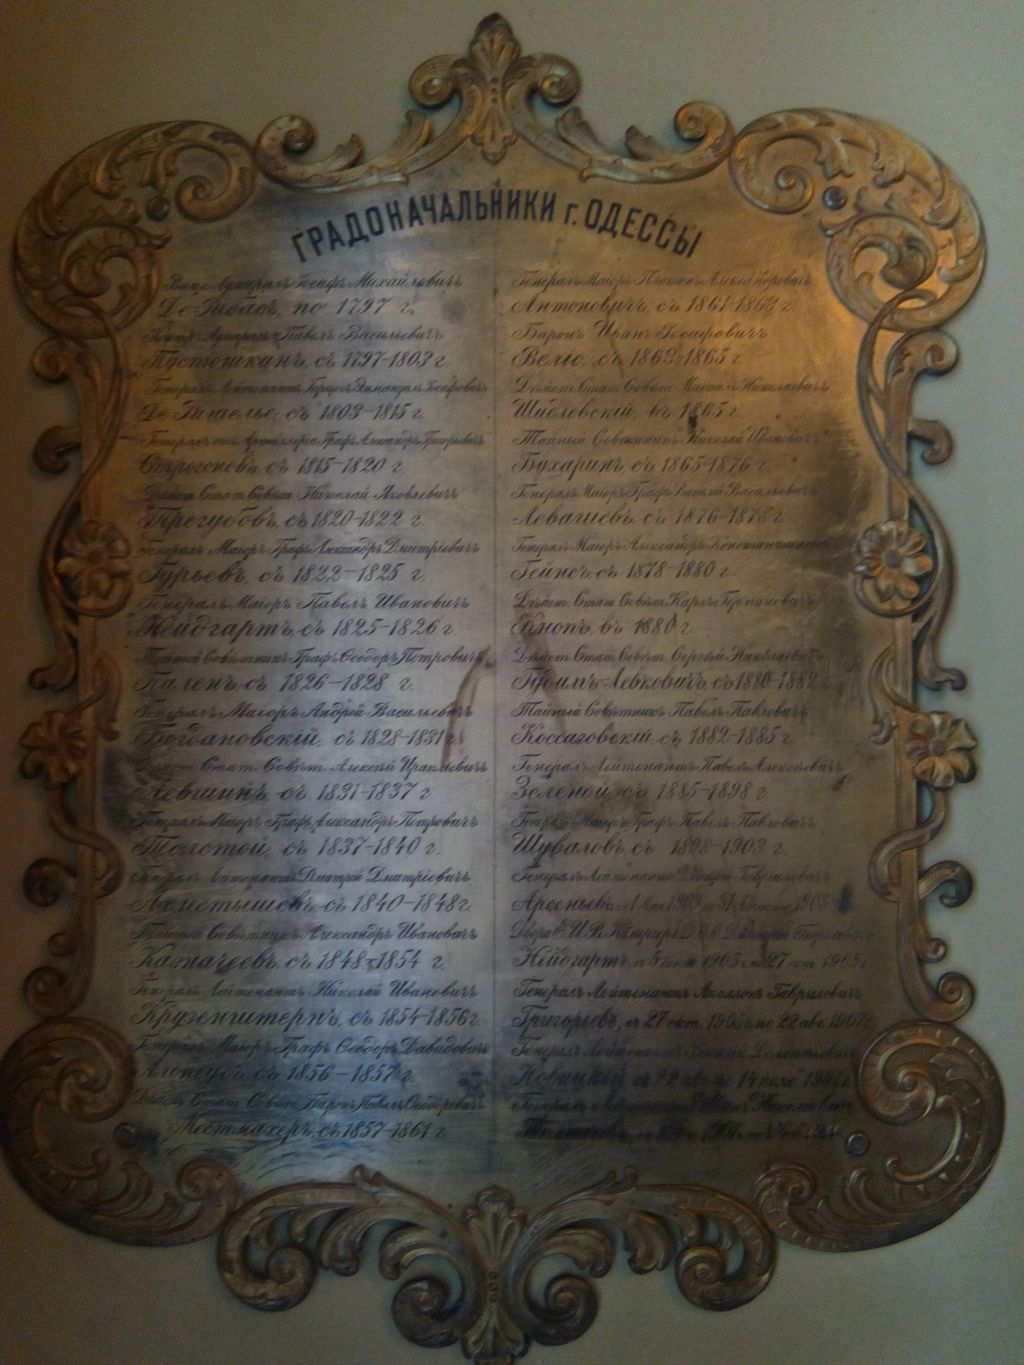 ГРАДОНАЧАЛЬНИКИ г. ОДЕССЫ
Вице Адмиралъ Іосифъ Михайловичъ
Де-Рибасъ, по 1797 г.
Контръ Адмиралъ Павелъ Васильевичъ
Пустошкинъ, съ 1797-1803 г.
Генералъ Лейтенантъ Герцогъ Эммануилъ Іосифовичъ
Де-Ришелье, съ 1803-1815 г.
Графъ Александръ Григорьевичъ
Строгоновъ, съ 1815-1820 г.
Дѣйст. Стат. Совѣтн. Николай Яковлевичъ
Трегубовъ, съ 1820-1822 г.
Генералъ Маіоръ Графъ Александръ Дмитріевичъ
Гурьевъ, съ 1822-1825 г.
Генералъ Маіоръ Павелъ Ивановичъ
Нейдгартъ, съ 1825-1826 г.
Тайный Совѣтникъ Графъ Ѳеодоръ Петровичъ
Паленъ съ 1826-1828 г.
Генералъ Маіоръ Андрей Васильевичъ
Богдановскій, съ 1828-1831 г.
Дѣйст. Стат. Совѣт. Алексѣй Иракліевичъ
Левшинъ, съ 1831-1837 г.
Генералъ Маіоръ Графъ Александръ Петровичъ
Толстой, съ 1837-1840 г.
Генералъ Лейтенантъ Дмитрій Дмитріевичъ
Ахлестышевъ, съ 1840-1848 г.
Тайный Совѣтникъ Александръ Ивановичъ
Казначеевъ, съ 1848-1854 г.
Генералъ Лейтенантъ Николай Ивановичъ
Крузенштернъ, съ 1854-1856 г.
Генералъ Маіоръ Графъ Ѳеодоръ Давидовичъ
Алопеусъ, съ 1856-1857 г.
Дѣйст. Стат. Совѣтн. Баронъ Павелъ Ѳедоровичъ
Местмахеръ, съ 1857-1861 г.
Генералъ Маіоръ Платонъ Александровичъ
Антоновичъ, съ 1861-1863 г.
Баронъ Иванъ Іосафовичъ
Вельо, съ 1863-1865 г.
Дѣйст. Стат. Совѣт. Николаевичъ
Шидловскій, въ 1865 г.
Тайный Совѣтникъ Николай Ивановичъ
Бухаринъ, съ 1865-1876 г.
Генералъ Маіоръ Графъ Васильевичъ
Левашевъ, съ 1876-1878 г.
Генералъ Маіоръ Александръ Константиновичъ
Гейнсъ, съ 1878-1880 г.
Дѣйст. Стат. Совѣт. Карлъ
Кнопъ, въ 1880 г.
Дѣйст. Стат. Совѣт. Сергѣй Николаевичъ
Гудимъ-Левковичъ, съ 1880-1882 г.
Тайный Совѣтникъ Павелъ Павловичъ
Коссаговскій, съ 1882-1885 г.
Генералъ Лейтенантъ Павелъ Алексѣевичъ
Зеленой, съ 1885-1898 г.
Генералъ Маіоръ Графъ Павелъ Павловичъ
Шуваловъ, съ 1898-1903 г.
Генералъ Лейтенантъ Дмитрій Гавріиловичъ
Арсеньевъ
Двора Е. И. В. Д. С. С. Дмитрій
Нейдгартъ, 1905 по 27 окт. 1905 г.
Генералъ Лейтенантъ Аполлонъ Гавриловичъ
Григорьевъ, съ 27 окт. 1905 г. по 22 авг. 1907 г.
Генералъ
Новицкій
Генералъ Иванъ Николаевичъ
Толмачевъ